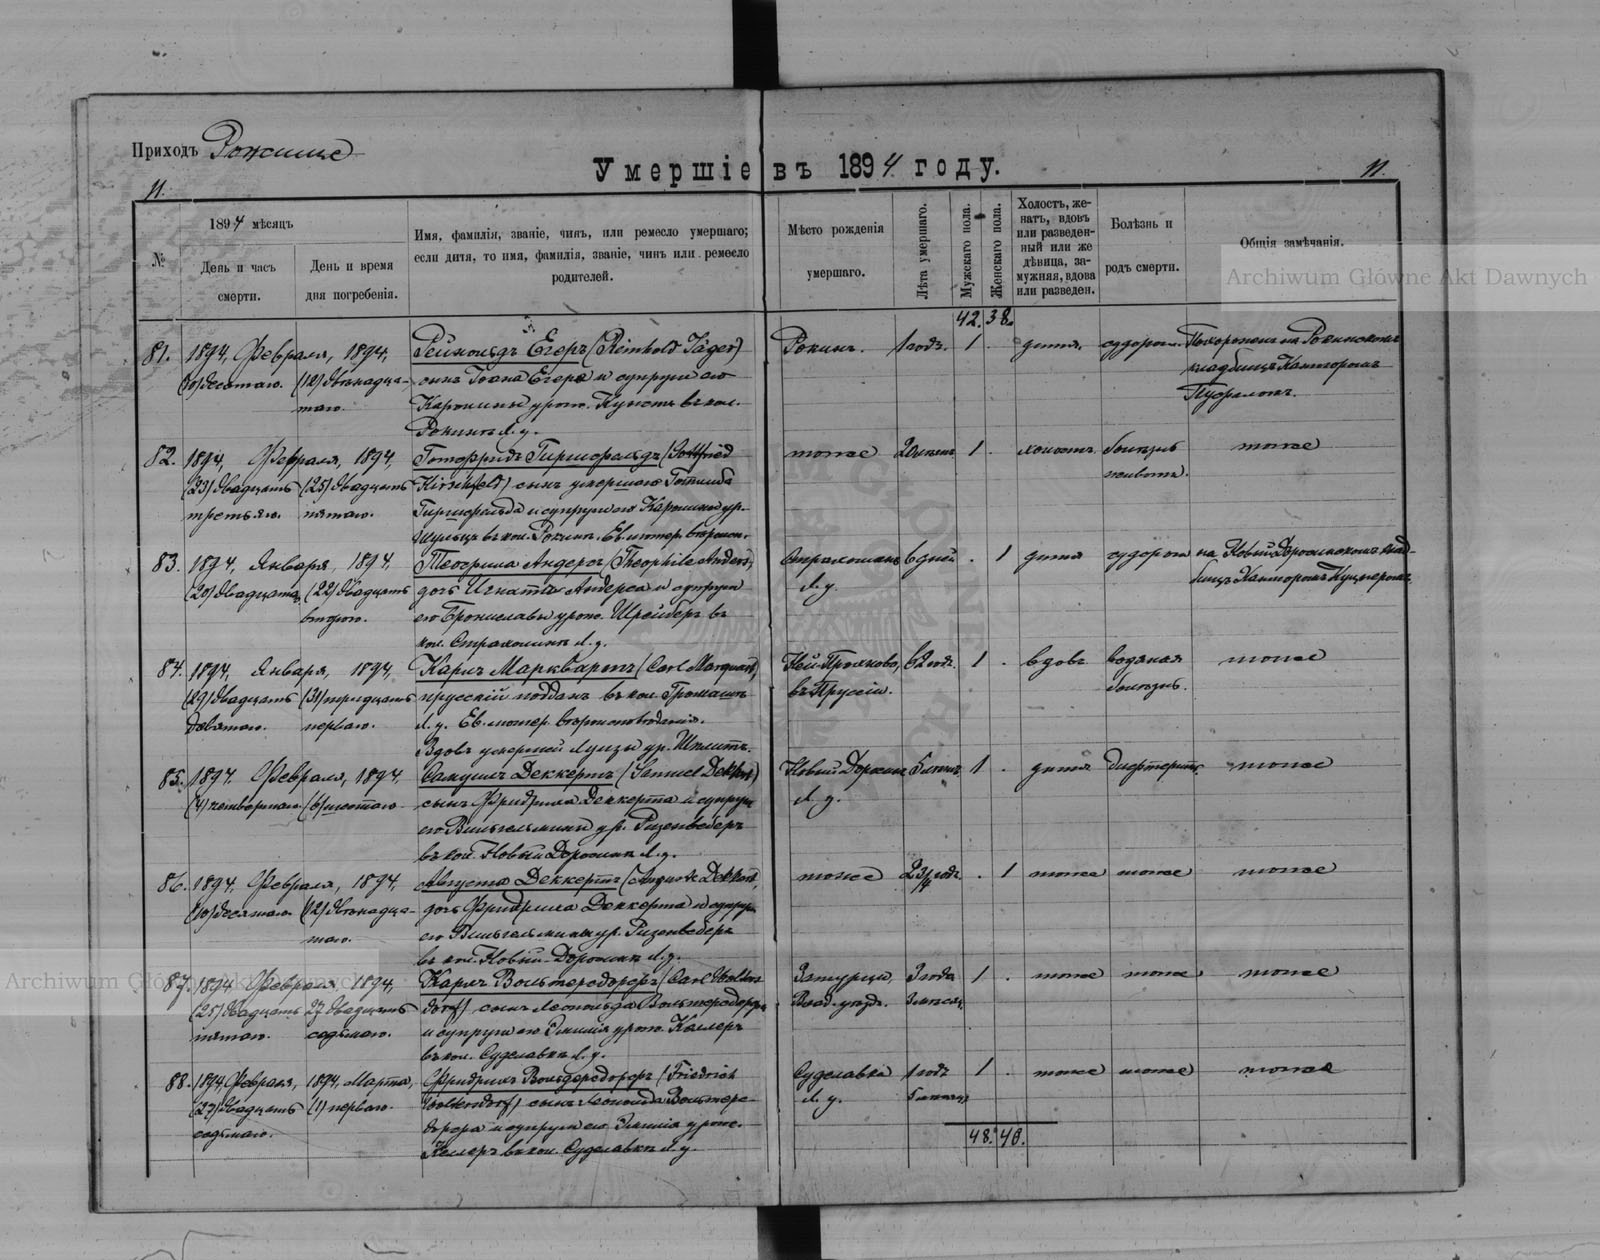 Приходъ Рожище
Умершіе въ 1894 году.
11.
11.
№
1894 мѣсяцъ
День и часъ смерти.
День и время дня погребенія.
Имя, фамилія, званіе, чинъ, или ремесло умершаго;
если дитя, то имя, фамилія, званіе, чинъ или ремесло
родителей.
Мѣсто рожденія
умершаго.
Лѣта умершаго.
Мужскаго пола.
Женскаго пола.
Холостъ, же-
натъ, вдовъ
или разведен-
ный или же
дѣвица, за-
мужняя, вдова
или разведен.
Болѣзнь и
родъ смерти.
Общія замѣчанія.
Archiwum Główne Akt Dawnych
42. 38.
81. 1894, Февраля, 1894, Рейнольдъ Егеръ (Reinhold Jäger) Рокинъ. 1 годъ. 1 . дитя. судорога. Похороненъ на Рокинскомъ
(10) десятаго. (12) двѣнадца- сынъ Іоана Егера и супруги его кладбищѣ Канторомъ
таго. Каролины урож. въ кол.
Рокинъ Л. у.
82. 1894, Февраля, 1894, Готфридъ Гиршфельдъ (Gottfried тоже 20 лѣтъ 1 . холостъ болѣзнь тоже
(23) двадцать (25) двадцать Hirschfeld) сынъ умершаго Готлиба живота.
третьяго. пятаго. Гиршфельда и супруги его Каролины ур.
Шульцъ въ кол. Рокинъ. Ев. лютер. вѣроисп.
83. 1894, Января, 1894, Теофила Андерсъ (Theophile Anders), Страхолинъ 6 дней . 1 дитя судорога на Новый-Дорожискомъ клад-
(20) двадцатаго (22) двадцать дочь Игнатія Андерса и супруги Л. у. бищѣ Канторомъ
втораго. его Брониславы урож. Шрейберъ въ
кол. Страхолинъ Л. у.
84. 1894, Января, 1894, Карлъ Марквартъ (Carl Marquart), 62 годъ. 1 . вдовъ водяная тоже
(29) двадцать (31) тридцать прусскій поддан. въ кол. въ Пруссіи. болѣзнь.
девятаго. перваго. Л. у. Ев. лютер. вѣроисповѣданія.
Вдовъ умершей Луизы ур.
85. 1894 Февраля, 1894, Самуилъ Деккертъ (Samuel Dekkert) Новый Дорожинъ 5 лѣтъ 1 . дитя дифтеритъ тоже
(4) четвертаго. (6) шестаго сынъ Фридриха Деккерта и супруги Л. у.
его Вильгельмины ур. Ризенведеръ
въ кол. Новый Дорожинъ Л. у.
86. 1894, Февраля, 1894, Августа Деккертъ (Auguste Dekkert), тоже 2 3/4 годъ . 1 тоже тоже тоже
(10) десятаго (12) двѣнадца- дочь Фридриха Деккерта и супруги
таго. его Вильгельмины ур. Ризенведеръ
въ кол. Новый-Дорожинъ Л. у.
Archiwum Główne Akt Dawnych
87. 1894 Февраля, 1894, Карлъ Вольтерсдорфъ (Carl Wolters- Затурцы, 3 года 1 . тоже тоже тоже
(25) двадцать 27 двадцать dorf) сынъ Леопольда Вольтерсдорфа Влад. уѣзд. 3 мѣсяц.
пятаго. седьмаго. и супруги его Эмилія урож. Келлеръ
въ кол. Суделавка Л. у.
88. 1894, Февраля, 1894, Марта, Фридрихъ Вольдерсдорфъ (Friedrich Суделавка 1 годъ 1 . тоже тоже тоже
(27) двадцать (1) перваго. Woltersdorf) сынъ Леопольда Вольтерс- Л. у. 5 мѣсяц.
седьмаго. дорфа и супруги его Эмилія урож.
Келлеръ въ кол. Суделавка Л. у.
48. 40.